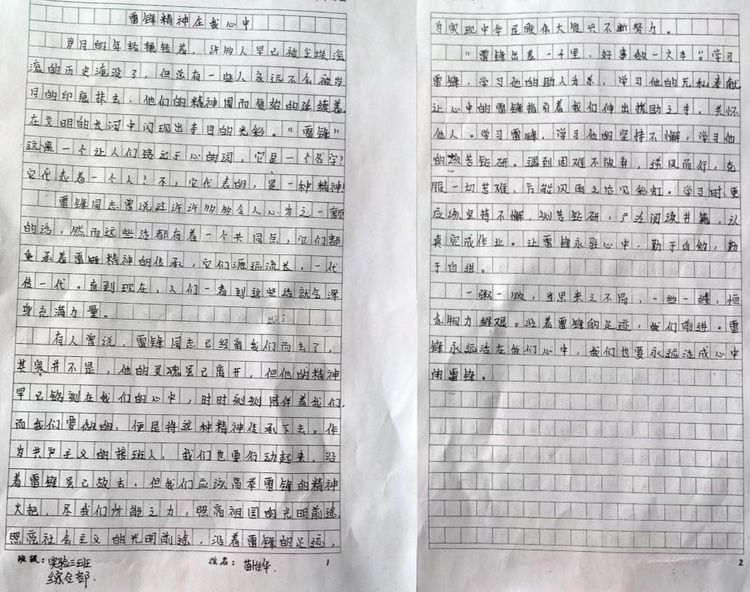 雷锋精神在我心中
岁月的年轮碾转着，许多人早已被尘埃滚
滚的历史淹没了，但总有一些人永远不会被岁
月的印痕抹去，他们的精神因而复始的延续着，
在文明的长河中闪现出夺目的光彩。"雷锋"
这是一个让人们铭记于心的词，它是一个名字？
它代表着一个人？不，它代表的，是一种精神！
雷锋同志曾说过许许多多令人心为之一颤
的话，然而这些话都有着一个共同点，它们都
秉承着雷锋精神的传承，它们源远流长，一代
传一代。直到现在，人们一看到这些话就会浑
身充满力量。
有人曾说，雷锋同志已经离我们而去了，
其实并不是，他的灵魂虽已离开，但他的精神
早已铭刻在我们的心中，时时刻刻陪伴着我们，
而我们要做的，便是将这种精神传承下去。作
为共产主义的接班人，我们也要行动起来，沿
着雷锋虽已故去，但我们应该高举雷锋的精神
火把，尽我们所能之力，照亮祖国的光明前途，
照亮社会主义的光明前途，沿着雷锋的足迹，
班级：实验三班 姓名：苗佳华 1
综合部
为实现中华民族伟大复兴不断努力。
"雷锋出差一千里，好事做一火车"学习
雷锋，学习他的助人为乐，学习他的无私奉献
让心中的雷锋指引着我们伸出援助之手，关怀
他人。学习雷锋，学习他的坚持不懈，学习他
的刻苦钻研。遇到困难不放弃，逆风而行，克
服一切苦难，方能风雨之后见彩虹。学习时更
应该坚持不懈，刻苦钻研，广泛阅读书籍，认
真完成作业。让雷锋永驻心中，勤于自勉，勤
于自进。
一粥一饭，当思来之不易，一丝一缕，恒
念物力维艰。沿着雷锋的足迹，我们前进。雷
锋永远活在我们心中，我们也要永远活成心中
的雷锋。
2